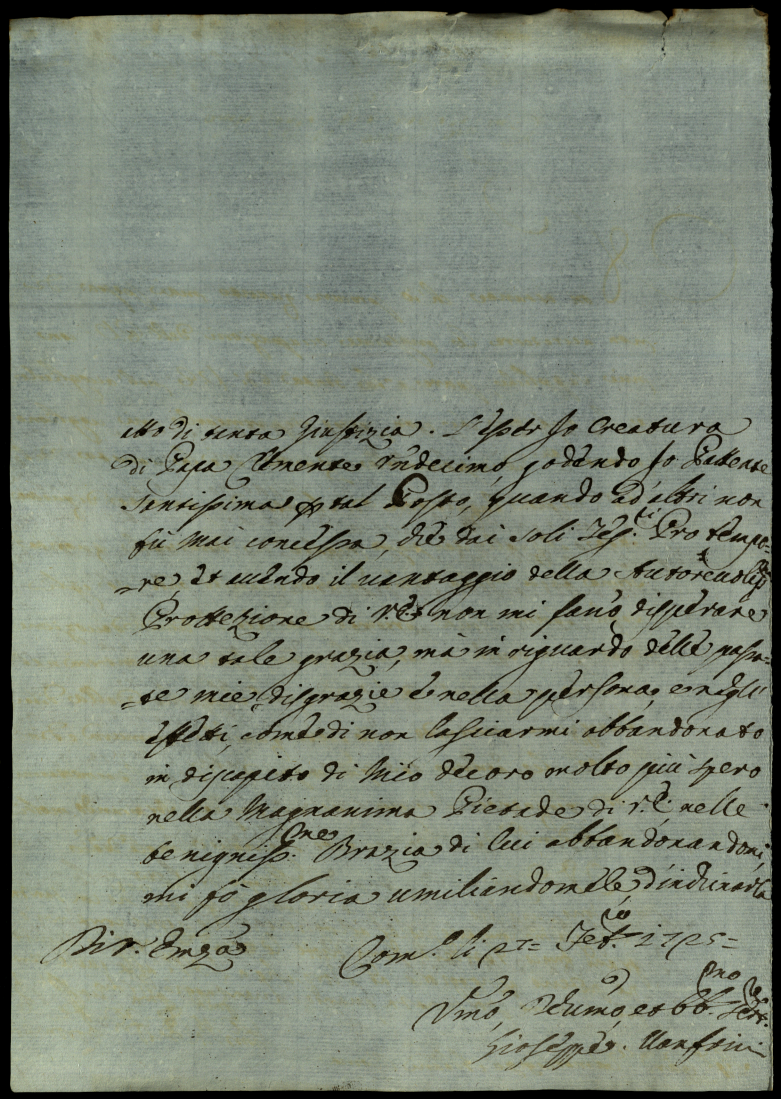 atto di tanta Giustizia. L'esser Io Creatura
di Papa Clemente Undecimo godendo Io Pattente
Santissima p tal Posto, quando ad'altri non
fù mai concessa, che dai soli Teş.ri Pro tempo-
-re, et avendo il vantaggio della Autoreuoliss.ma
Protezione di V.E. non mi fanò disperare
una tale grazia, mà in riguardo delle passa-
-te mie disgrazie è nella persona, e negl'
effetti, come di non lasciarmi abbandonato
in discapito di Mio decoro molto più spero
nella Magnanima Pietade di V.E. nelle
benigniss.me Brazia di lui abbandonandomi,
mi fò gloria umiliandomele d'inchinarla
Di V. Emza
Com.o li 27= 1725=
Vmo, et obb.mo Ser.
Gioseppe Manfrini